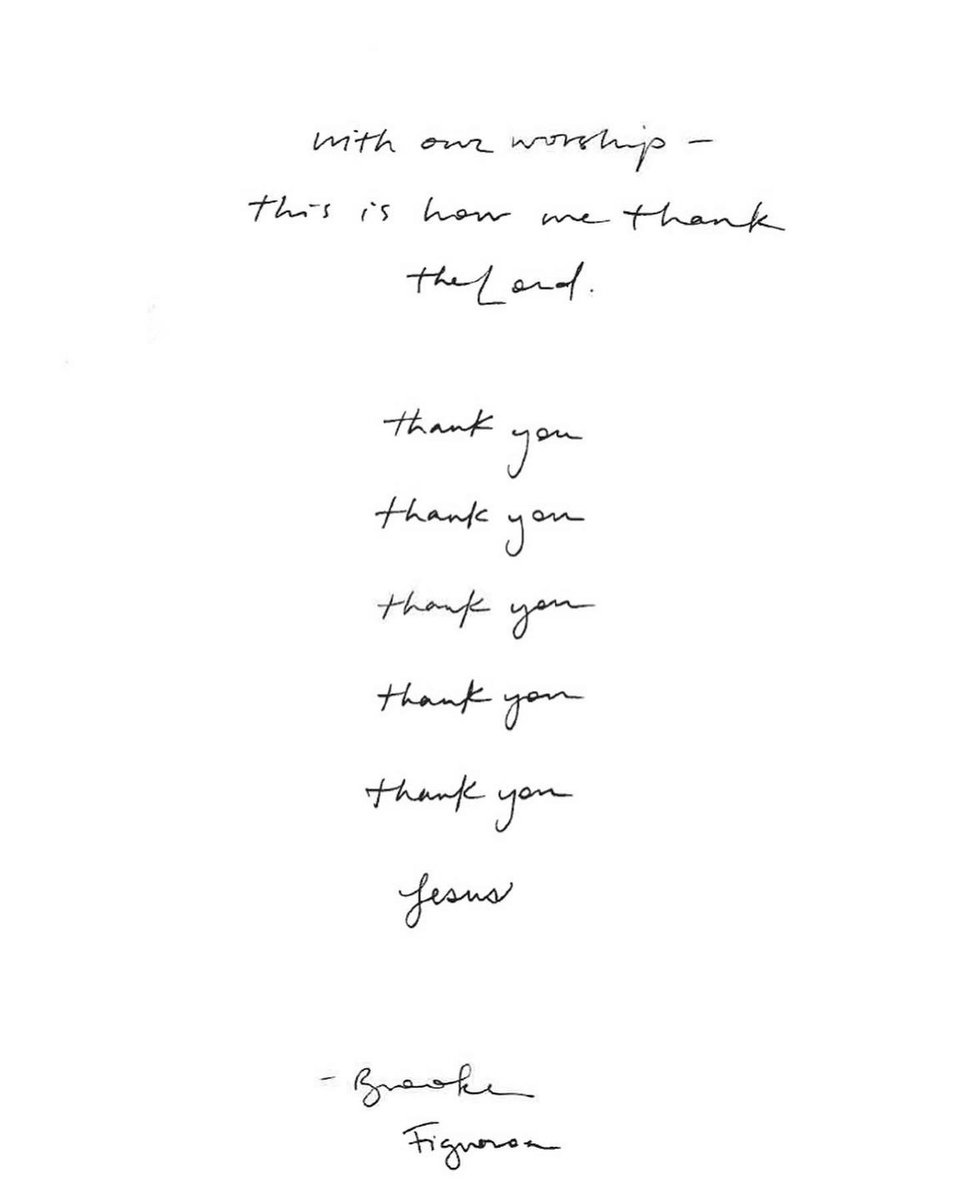 with our worship -
this is how we thank
the Lord.
thank you
thank you
thank you
thank you
thank you
Jesus
- Brooke
Figueroa